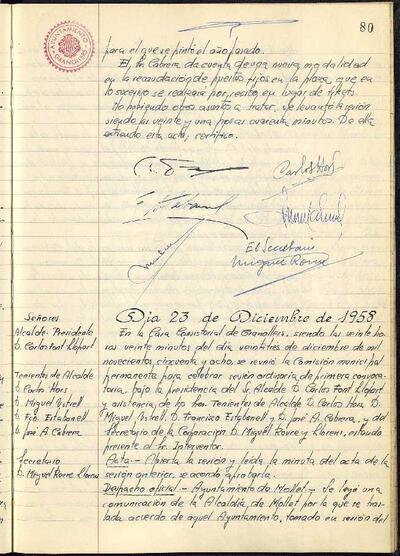 80
AYUNTAMIENTO
GRANOLLERS
para el que se pintó el año pasado.
El Sr. Cabrera da cuenta de una nueva modalidad
en la recaudación de puestos fijos en la plaza que en
lo sucesivo se realizará por recibo, en lugar de tikets.
No habiendo otros asuntos a tratar, se levantó la sesión
siendo las veinte y una horas cuarenta minutos. De ella
extiendo esta acta, certifico.
Carlos Hors
El Secretario
Miguel Roure
Señores
Alcalde-Presidente
D. Carlos Font Llopart
Tenientes de Alcalde
D. Carlos Hors
D. Miguel Astrell
D. Fco. Estabanell
D. José A. Cabrera
Secretario
D. Miguel Roure Llorens
Dia 23 de Diciembre de 1958
En la Casa Consistorial de Granollers, siendo las veinte ho-
ras veinte minutos del día veintitrés de diciembre de mil
novecientos cincuenta y ocho, se reunió la Comisión municipal
permanente para celebrar sesión ordinaria de primera convoca-
toria, bajo la presidencia del Sr. Alcalde D. Carlos Font Llopart
y asistencia de los Tenientes de Alcalde D. Carlos Hors D.
Miguel Astrell D. Francisco Estabanell y D. José A. Cabrera, y del
Secretario de la Corporación D. Miguel Roure y Llorens, estando
presente el Sr. Interventor.
Acta.- Abierta la sesión y leída la minuta del acta de la
sesión anterior, se acordó aprobarla.
Despacho oficial.- Ayuntamiento de Mollet.- Se leyó una
comunicación de la Alcaldía de Mollet por la que se tras-
lada acuerdo de aquel Ayuntamiento, tomado en sesión del